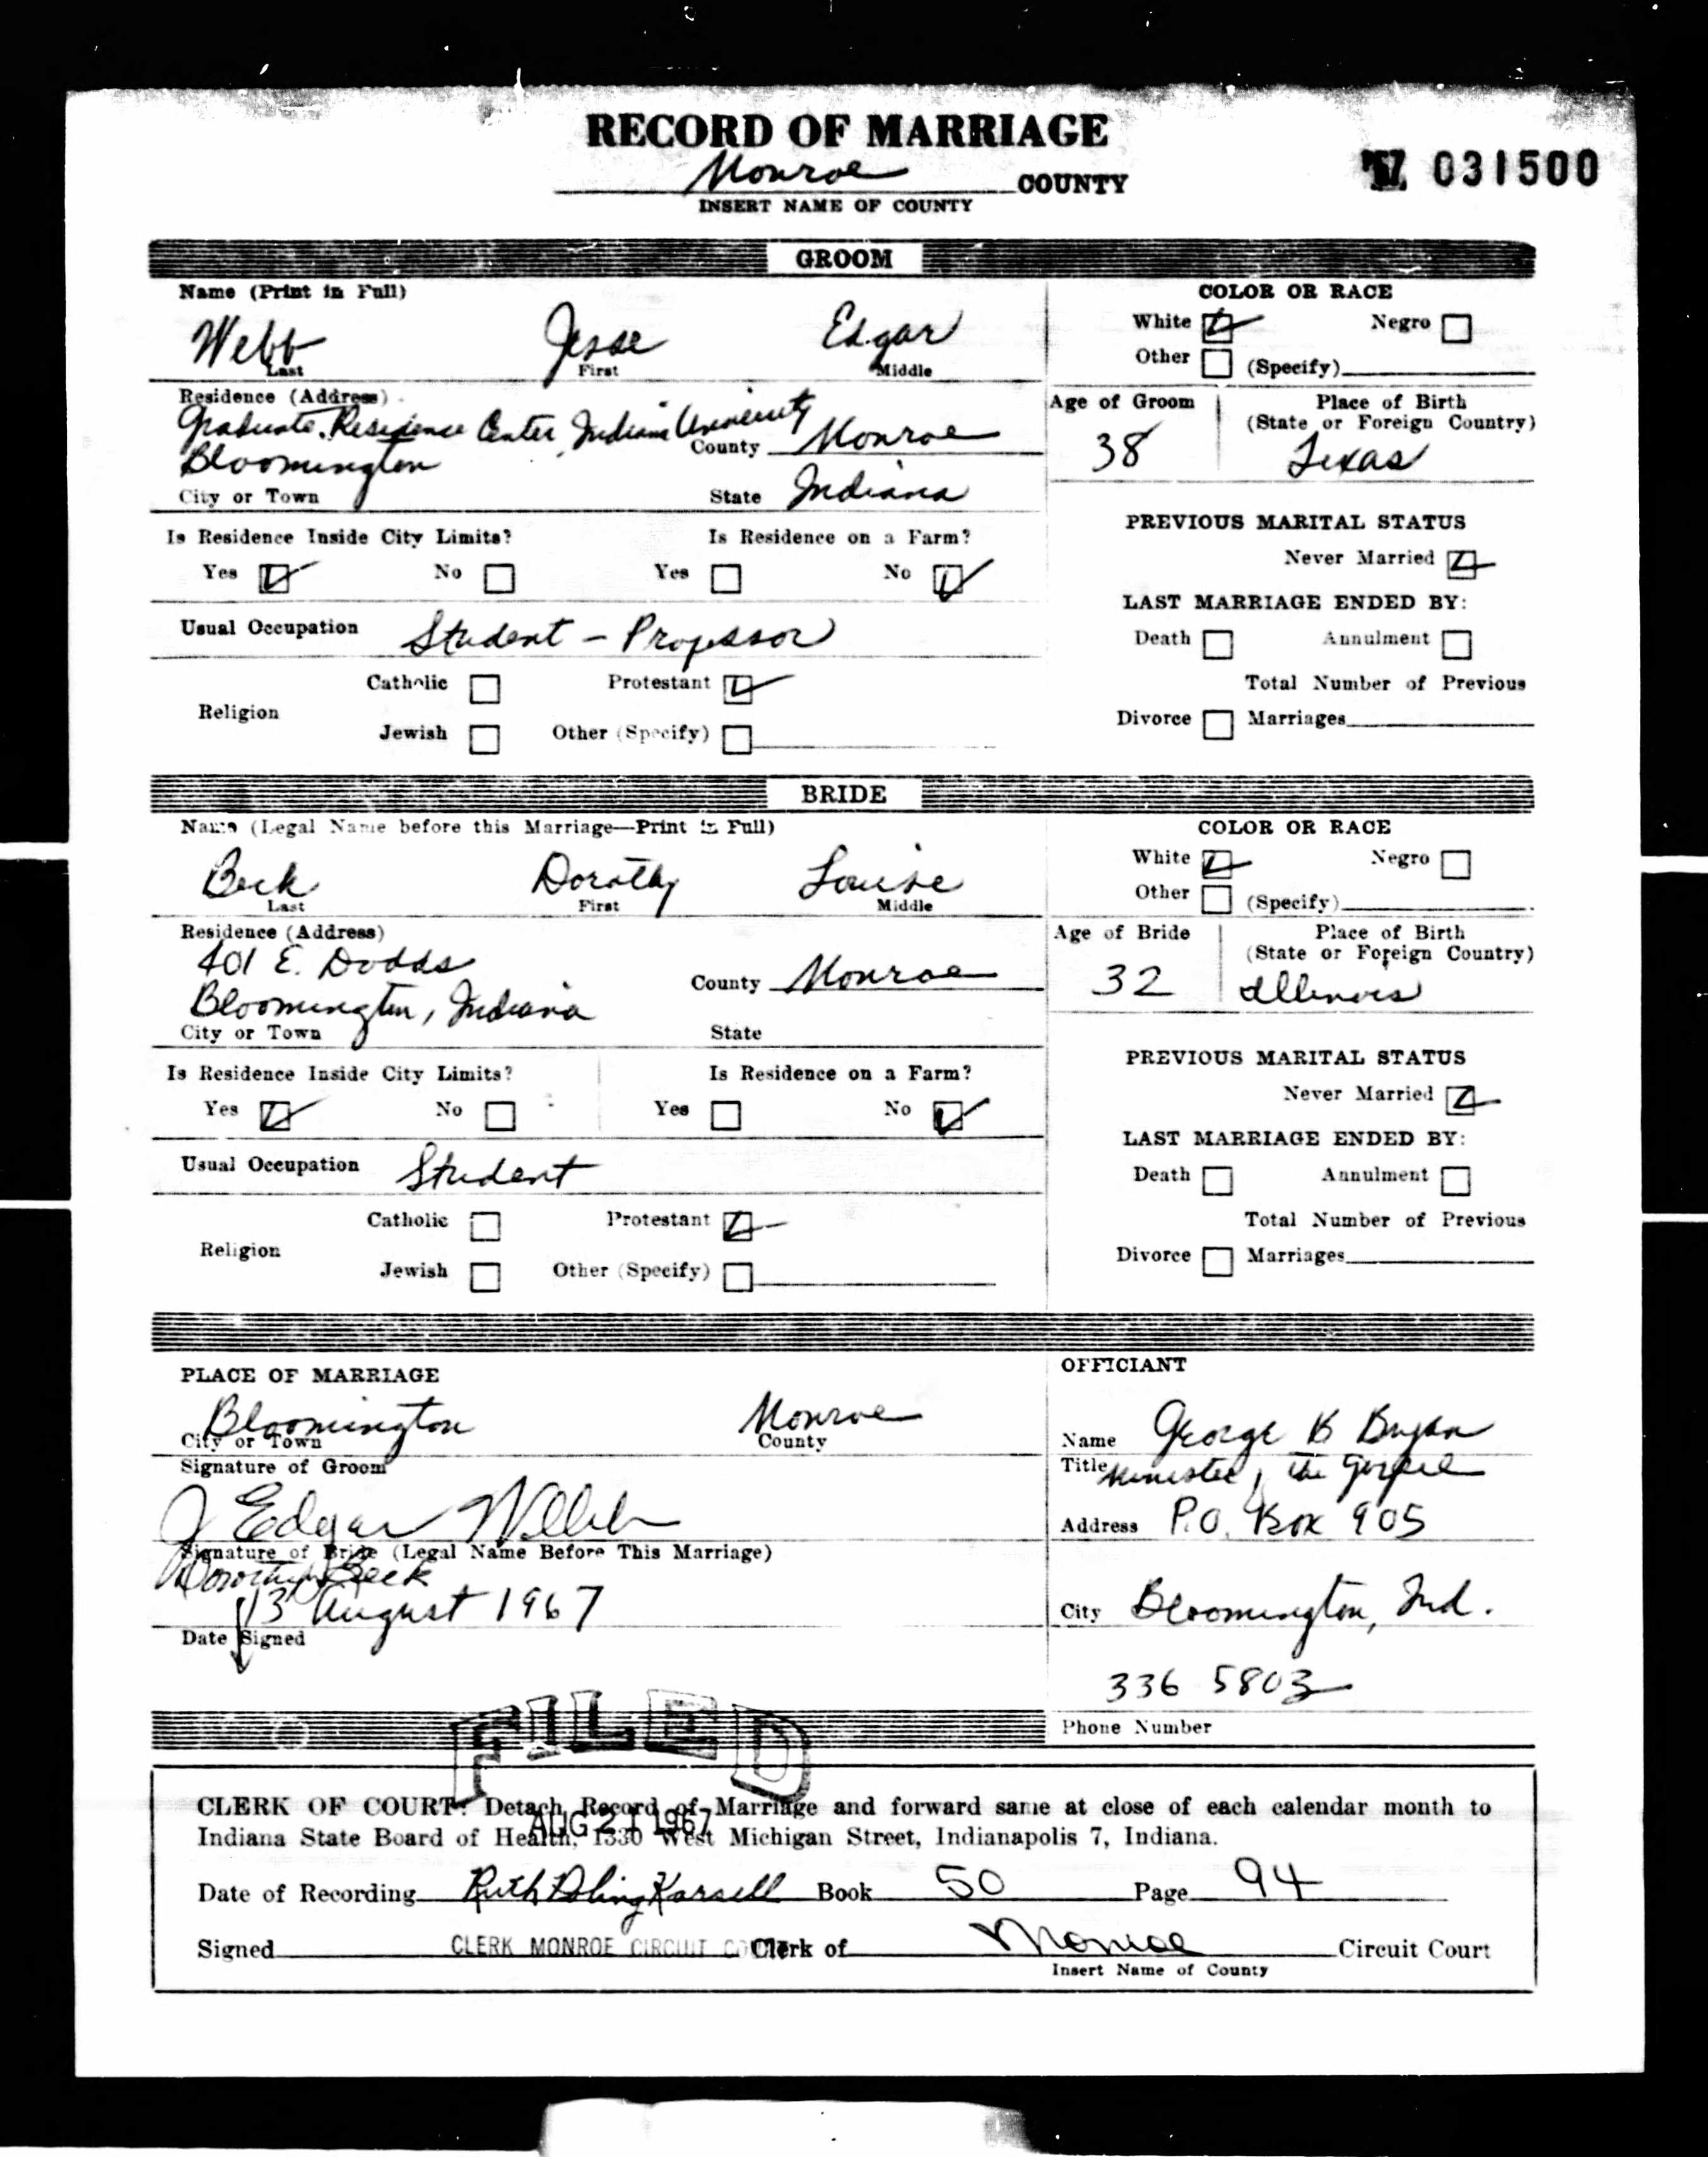 RECORD OF MARRIAGE
Monroe COUNTY
INSERT NAME OF COUNTY
67 031500
GROOM
Name (Print in Full)
Webb Jesse Edgar
Last First Middle
COLOR OR RACE
White Negro
Other (Specify)
Residence (Address)
Graduate Residence Center, Indiana University
Bloomington County Monroe
City or Town State Indiana
Age of Groom Place of Birth
(State or Foreign Country)
38 Texas
Is Residence Inside City Limits? Is Residence on a Farm?
Yes No Yes No
PREVIOUS MARITAL STATUS
Never Married
LAST MARRIAGE ENDED BY:
Usual Occupation Student - Professor
Death Annulment
Catholic Protestant
Total Number of Previous
Religion
Divorce Marriages
Jewish Other (Specify)
BRIDE
Name (Legal Name before this Marriage—Print in Full)
Beck Dorothy Louise
Last First Middle
COLOR OR RACE
White Negro
Other (Specify)
Residence (Address)
401 E. Dodds
County Monroe
Bloomington, Indiana
City or Town State
Age of Bride Place of Birth
(State or Foreign Country)
32 Illinois
Is Residence Inside City Limits? Is Residence on a Farm?
Yes No Yes No
PREVIOUS MARITAL STATUS
Never Married
LAST MARRIAGE ENDED BY:
Usual Occupation Student
Death Annulment
Catholic Protestant
Total Number of Previous
Religion
Divorce Marriages
Jewish Other (Specify)
PLACE OF MARRIAGE
Bloomington Monroe
City or Town County
Signature of Groom
J Edgar Webb
Signature of Bride (Legal Name Before This Marriage)
Dorothy Beck
13 August 1967
Date Signed
OFFICIANT
Name George B Bryan
Title Minister, the Gospel
Address P.O. Box 905
City Bloomington, Ind.
336 5803
Phone Number
FILED
AUG 21 1967
CLERK OF COURT: Detach Record of Marriage and forward same at close of each calendar month to
Indiana State Board of Health, 1330 West Michigan Street, Indianapolis 7, Indiana.
Date of Recording Ruth Poling Karsell Book 50 Page 94
Signed CLERK MONROE CIRCUIT COURT Clerk of Monroe Circuit Court
Insert Name of County